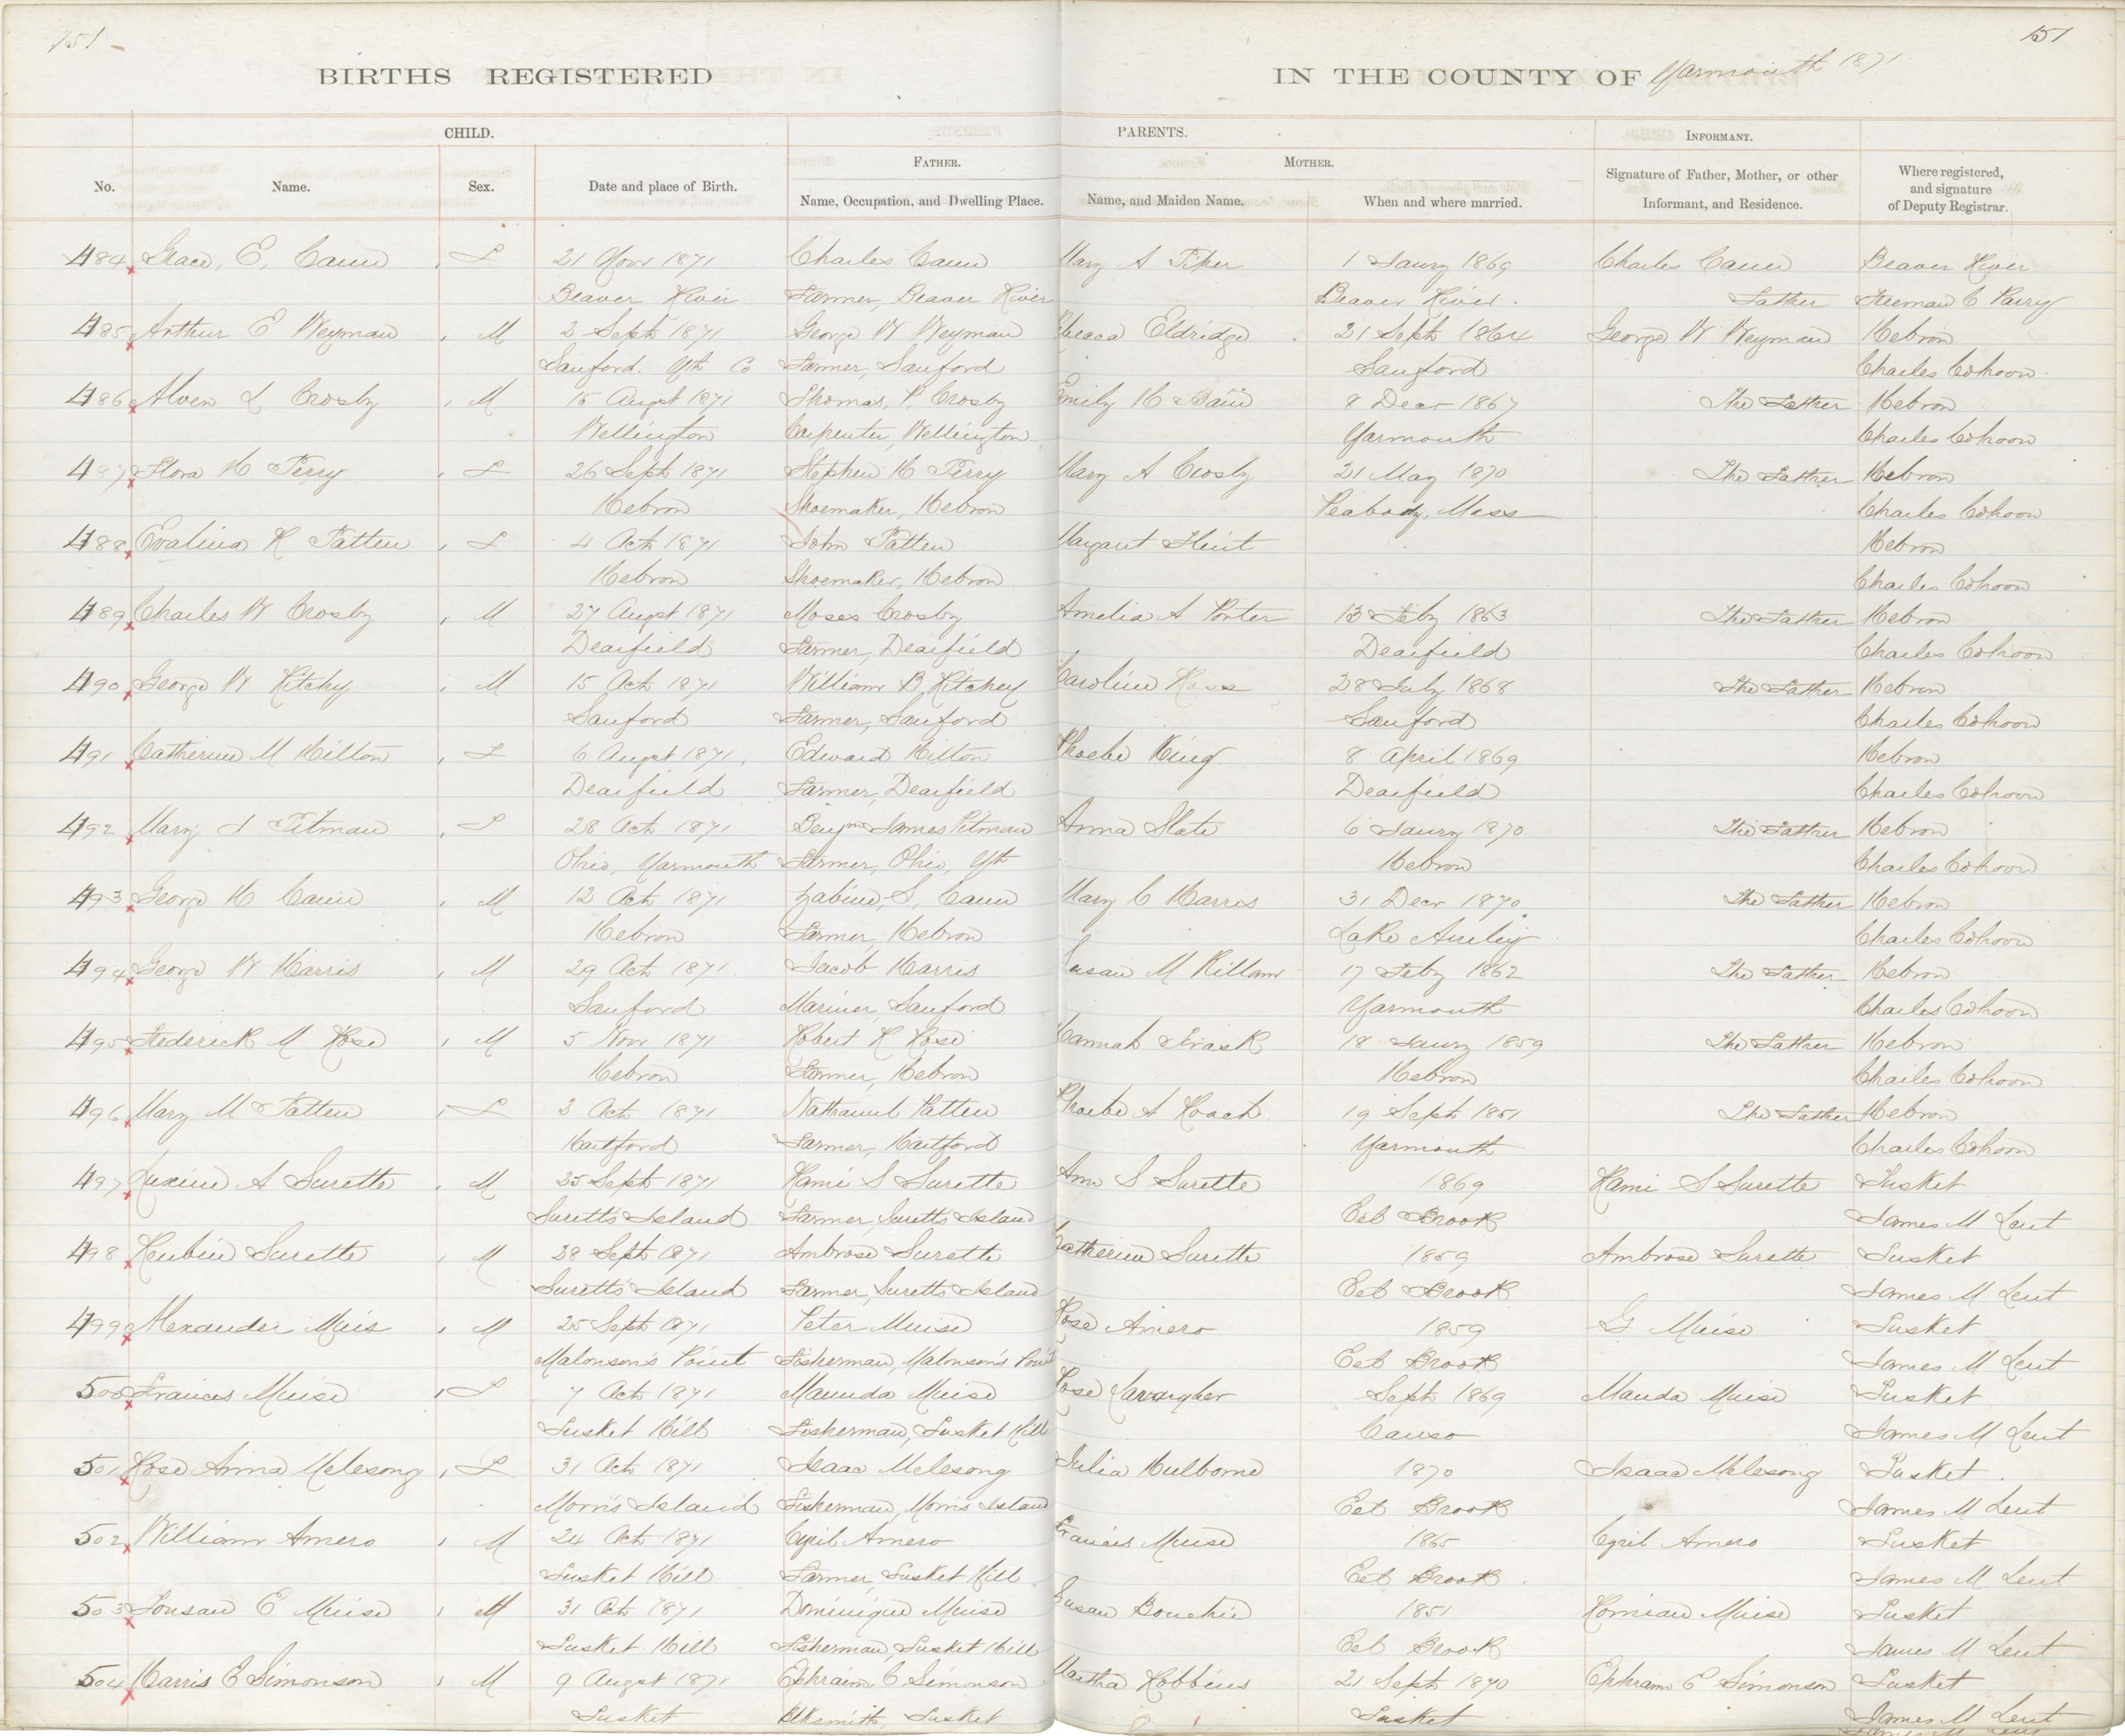 151
151
BIRTHS REGISTERED IN THE COUNTY OF Yarmouth 1871
CHILD. PARENTS. INFORMANT.
FATHER. MOTHER.
No. Name. Sex. Date and place of Birth. Name, Occupation, and Dwelling Place. Name, and Maiden Name. When and where married. Signature of Father, Mother, or other Informant, and Residence. Where registered, and signature of Deputy Registrar.
484 Grace, E, Cann F 21 Novr 1871 Charles Cann Mary A 1 Jaury 1869 Charles Cann Beaver River
Beaver River Farmer, Beaver River Beaver River. Father Freeman C Parry
485 Arthur E Weyman M 2 Sept 1871 George W Weyman Rebecca Eldridge 21 Sept 1864 George W Weyman Hebron
Sanford. Yth Co Farmer, Sanford Sanford Charles Cohoon.
486 Alven L Crosby M 15 Augst 1871 Thomas, P. Crosby Emily H 8 Decr 1867 The Father Hebron
Wellington Carpenter, Wellington Yarmouth Charles Cohoon
487 Flora H Perry F 26 Sept 1871 Stephen H Perry Mary A Crosby 21 May 1870 The Father Hebron
Hebron Shoemaker, Hebron Peabody, Mass Charles Cohoon
488 Evalina R Patten F 4 Oct 1871 John Patten Margaret Flint Hebron
Hebron Shoemaker, Hebron Charles Cohoon
489 Charles W Crosby M 27 Augst 1871 Moses Crosby Amelia A Porter 13 Feby 1863 The Father Hebron
Dearfield Farmer, Dearfield Dearfield Charles Cohoon
490 George W Ritchy M 15 Oct 1871 William B, Ritchey Caroline Ross 28 July 1868 The Father Hebron
Sanford Farmer, Sanford Sanford Charles Cohoon
491 Catherine M Hilton F 6 Augst 1871. Edward Hilton Phoebe King 8 April 1869 Hebron
Dearfield Farmer, Dearfield Dearfield Charles Cohoon
492 Mary Pitman F 28 Oct 1871 Benjmn James Pitman Anna Slate 6 Jaury 1870 The Father Hebron
Ohio, Yarmouth Farmer, Ohio, Yth Hebron Charles Cohoon
493 George H Cann M 12 Oct 1871 Zabine, S, Cann Mary C Harris 31 Decr 1870. The Father Hebron
Hebron Farmer, Hebron Lake Charles Cohoon
494 George W Harris M 29 Oct 1871 Jacob Harris Susan M Killam 17 Feby 1862 The Father Hebron
Sanford Mariner, Sanford Yarmouth Charles Cohoon
495 Frederick M Rose M 5 Novr 1871 Robert R Rose Hannah Trask 18 Jaury 1859 The Father Hebron
Hebron Farmer, Hebron Hebron Charles Cohoon
496 Mary M Patten F 3 Oct 1871 Nathaniel Patten Phoebe A Roach 19 Sept 1851 The Father Hebron
Hartford Farmer, Hartford Yarmouth Charles Cohoon
497 A Surette M 25 Sept 1871 Rami S Surette Ann S Surette 1869 Rami S Surette Tusket
Suretts Island Farmer, Suretts Island Eel Brook James M Lent
498 Reubin Surette M 28 Sept 1871 Ambrose Surette Catherine Surette 1859 Ambrose Surette Tusket
Suretts Island Farmer, Suretts Island Eel Brook James M Lent
499 Alexander Muis M 25 Sept 1871 Peter Muise Rose Amero 1859 G Muise Tusket
Malonson's Point Fisherman, Malonson's Point Eel Brook James M Lent
500 Frances Muise F 7 Oct 1871 Maunda Muise Rose Sept 1869 Mauda Muise Tusket
Tusket Hill Fisherman, Tusket Hill Canso James M Lent
501 Rose Anna Melesong F 31 Oct 1871 Isaac Melesong Julia Hulborne 1870 Isaac Melesong Tusket
Morris Island Fisherman, Morris Island Eel Brook James M Lent
502 William Amero M 24 Oct 1871 Cyril Amero Frances Muise 1865 Cyril Amero Tusket
Tusket Hill Farmer, Tusket Hill Eel Brook James M Lent
503 E Muise M 31 Oct 1871 Dominique Muise Susan Bouchie 1851 Muise Tusket
Tusket Hill Fisherman, Tusket Hill Eel Brook James M Lent
504 Harris E Simonson M 9 Augst 1871 Ephraim, C Simonson Martha Robbins 21 Sept 1870 Ephraim C Simonson Tusket
Tusket Blksmith, Tusket Tusket James M Lent